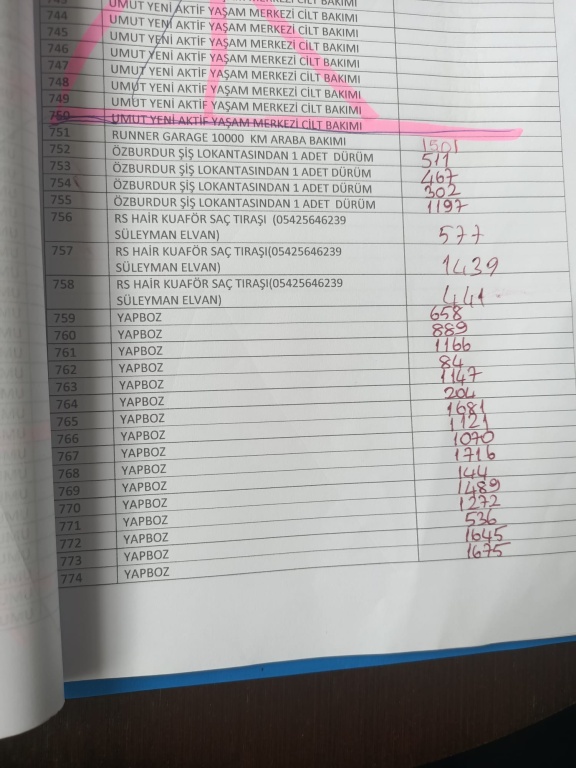 743 MERKEZİ CİLT BAKIMI
744 UMUT YENİ AKTİF YAŞAM MERKEZİ CİLT BAKIMI
745 UMUT YENİ AKTİF YAŞAM MERKEZİ CİLT BAKIMI
746 UMUT YENİ AKTİF YAŞAM MERKEZİ CİLT BAKIMI
747 UMUT YENİ AKTİF YAŞAM MERKEZİ CİLT BAKIMI
748 UMUT YENİ AKTİF YAŞAM MERKEZİ CİLT BAKIMI
749 UMUT YENİ AKTİF YAŞAM MERKEZİ CİLT BAKIMI
750 UMUT YENİ AKTİF YAŞAM MERKEZİ CİLT BAKIMI
751 RUNNER GARAGE 10000 KM ARABA BAKIMI 1501
752 ÖZBURDUR ŞİŞ LOKANTASINDAN 1 ADET DÜRÜM 511
753 ÖZBURDUR ŞİŞ LOKANTASINDAN 1 ADET DÜRÜM 467
754 ÖZBURDUR ŞİŞ LOKANTASINDAN 1 ADET DÜRÜM 302
755 ÖZBURDUR ŞİŞ LOKANTASINDAN 1 ADET DÜRÜM 1197
756 RS HAİR KUAFÖR SAÇ TIRAŞI (05425646239
SÜLEYMAN ELVAN) 577
757 RS HAİR KUAFÖR SAÇ TIRAŞI(05425646239
SÜLEYMAN ELVAN) 1439
758 RS HAİR KUAFÖR SAÇ TIRAŞI(05425646239
SÜLEYMAN ELVAN) 441
759 YAPBOZ 658
760 YAPBOZ 889
761 YAPBOZ 1166
762 YAPBOZ 84
763 YAPBOZ 1147
764 YAPBOZ 204
765 YAPBOZ 1681
766 YAPBOZ 1121
767 YAPBOZ 1070
768 YAPBOZ 1716
769 YAPBOZ 144
770 YAPBOZ 1489
771 YAPBOZ 1272
772 YAPBOZ 536
773 YAPBOZ 1645
774 YAPBOZ 1675